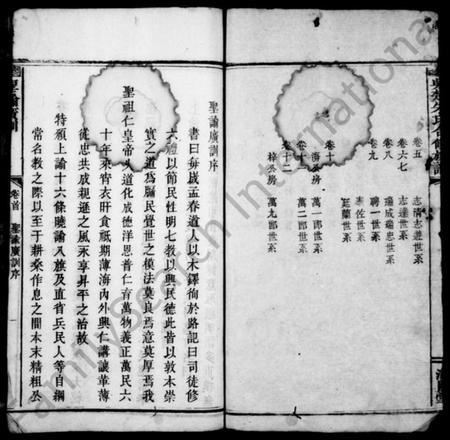 卷五 志清志達世系
卷六七 志達世系
卷八 達成達忠世系
卷九 聘一世系
志佐世系
廷蘭世系
卷十
濟公房 萬一郎世系
卷十一 萬二郎世系
卷十二
梓公房 萬九郎世系
聖諭廣訓
卷首 聖諭廣訓序
聖諭廣訓序
書曰每歲孟春遒人以木鐸徇於路記曰司徒修
六禮以節民性明七教以興民德此皆以敦本崇
實之道為牖民覺世之模法莫良焉意莫厚焉我
聖祖仁皇帝久道化成德洋恩普仁育萬物義正萬民六
十年來宵衣旰食祇期薄海內外興仁講讓革薄
從忠共成親遜之風永享昇平之治故
特頒上諭十六條曉諭八旗及直省兵民人等自綱
常名教之際以至于耕桑作息之間本末精粗公
FamilySearch International